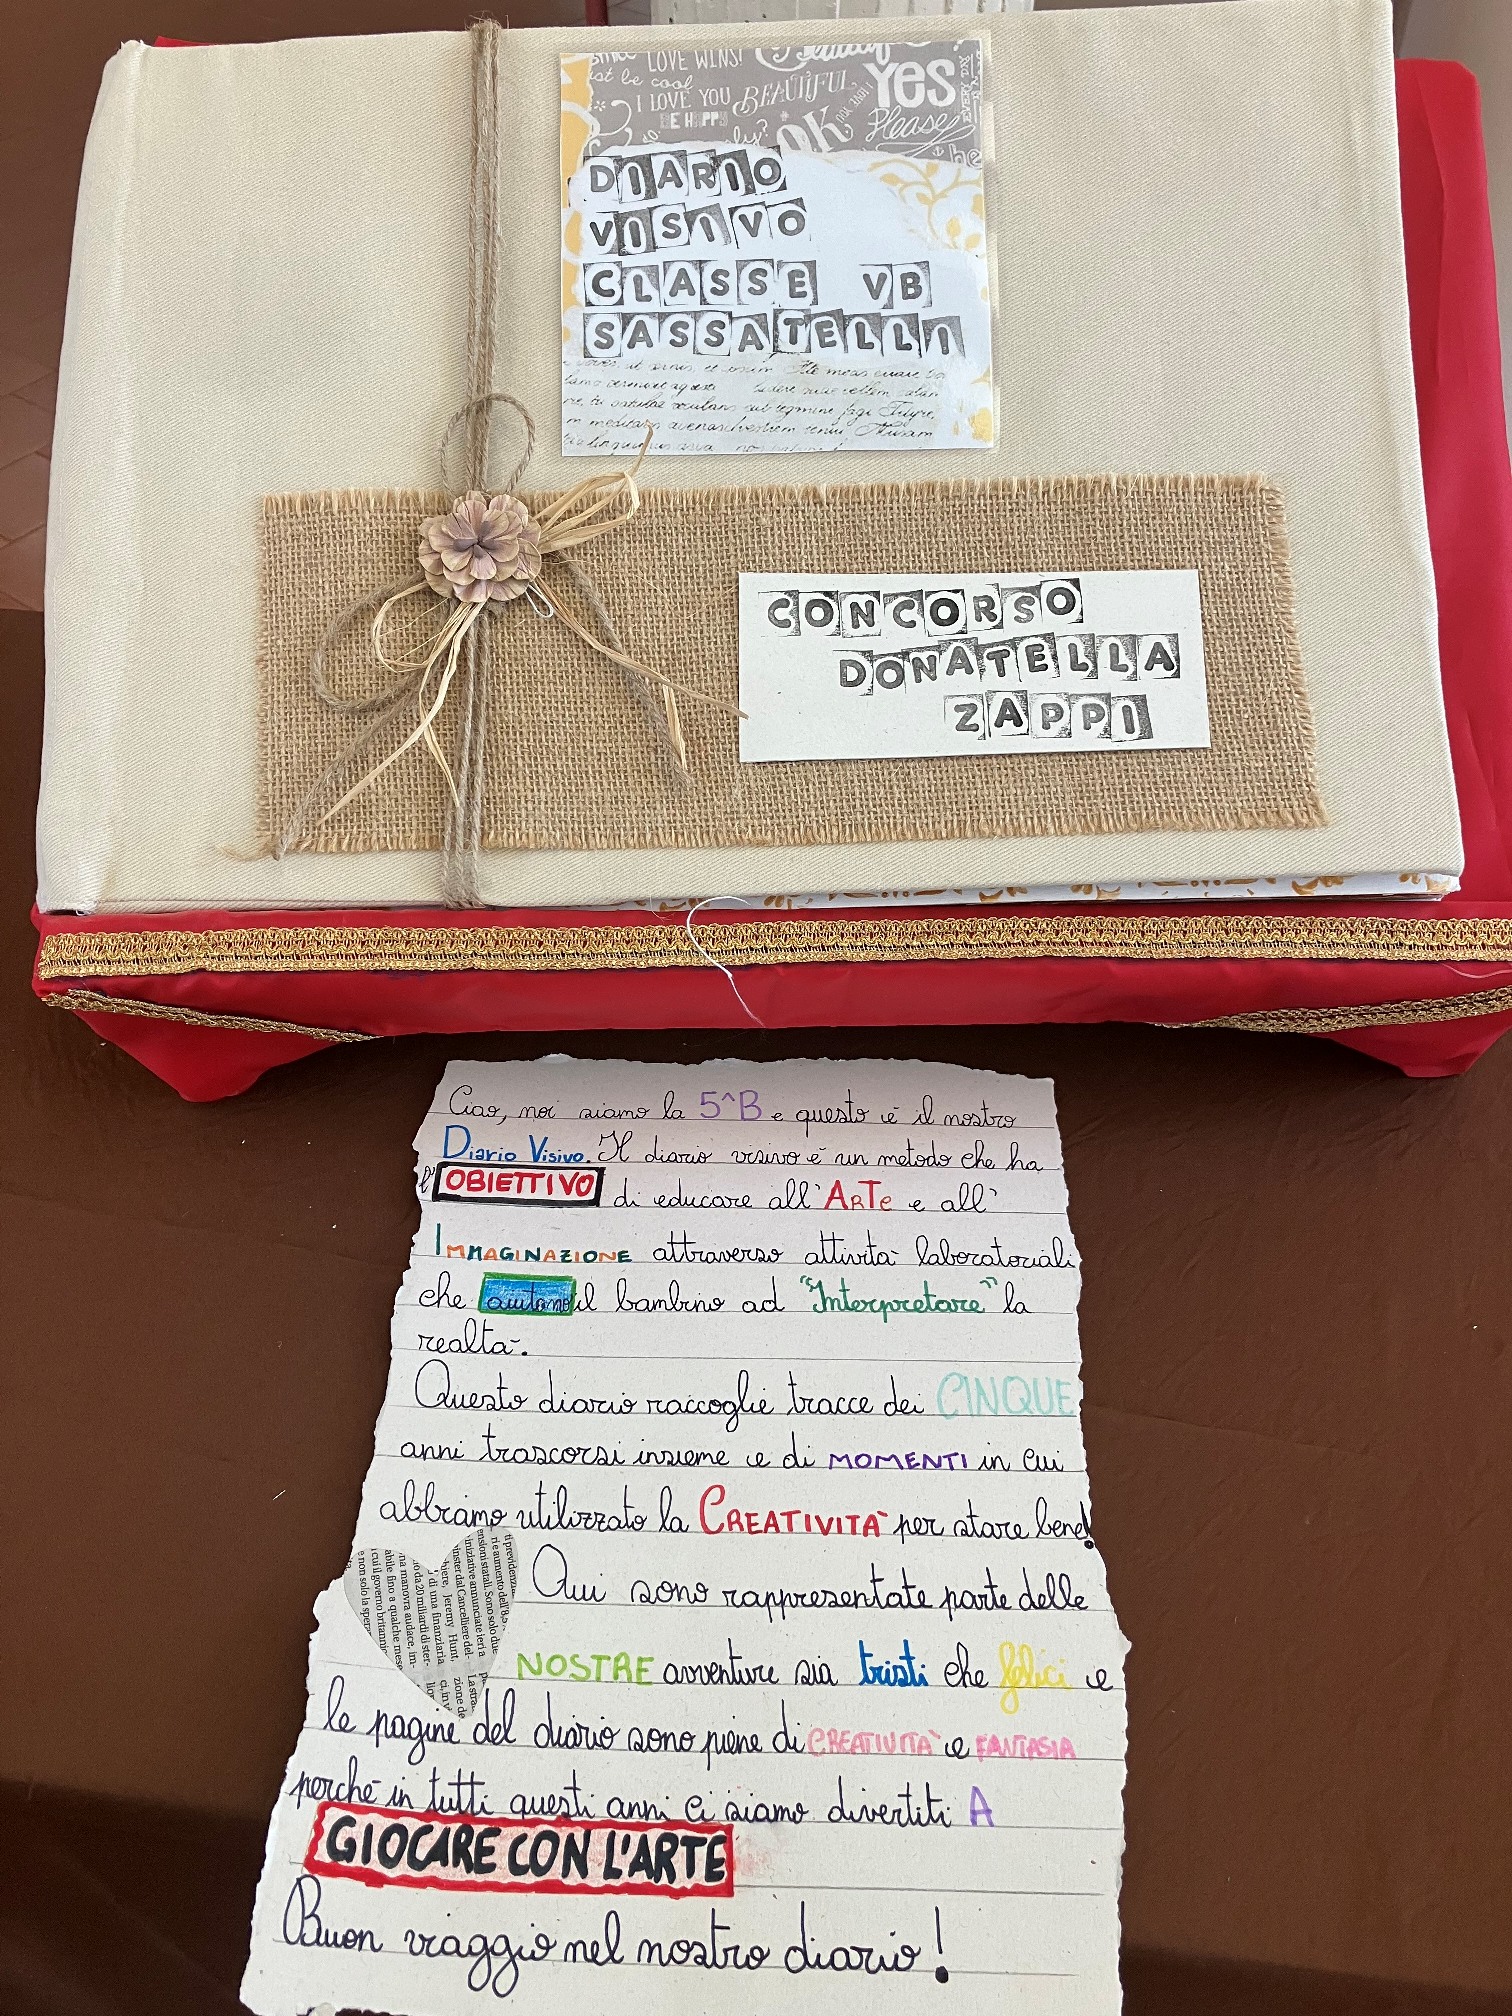 LOVE WINS!
just be cool
YES
I LOVE YOU BEAUTIFUL
BE HAPPY
OK Please
DIARIO
VISIVO
CLASSE VB
SASSATELLI
CONCORSO
DONATELLA
ZAPPI
Ciao, noi siamo la 5^B e questo è il nostro
Diario Visivo. Il diario visivo è un metodo che ha
l'OBIETTIVO di educare all'ARTE e all'
IMMAGINAZIONE attraverso attività laboratoriali
che aiutano il bambino ad "Interpretare" la
realtà.
Questo diario raccoglie tracce dei CINQUE
anni trascorsi insieme e di MOMENTI in cui
abbiamo utilizzato la CREATIVITÀ per stare bene!
Qui sono rappresentate parte delle
NOSTRE avventure sia tristi che felici e
le pagine del diario sono piene di CREATIVITÀ e FANTASIA
perché in tutti questi anni ci siamo divertiti A
GIOCARE CON L'ARTE
Buon viaggio nel nostro diario!